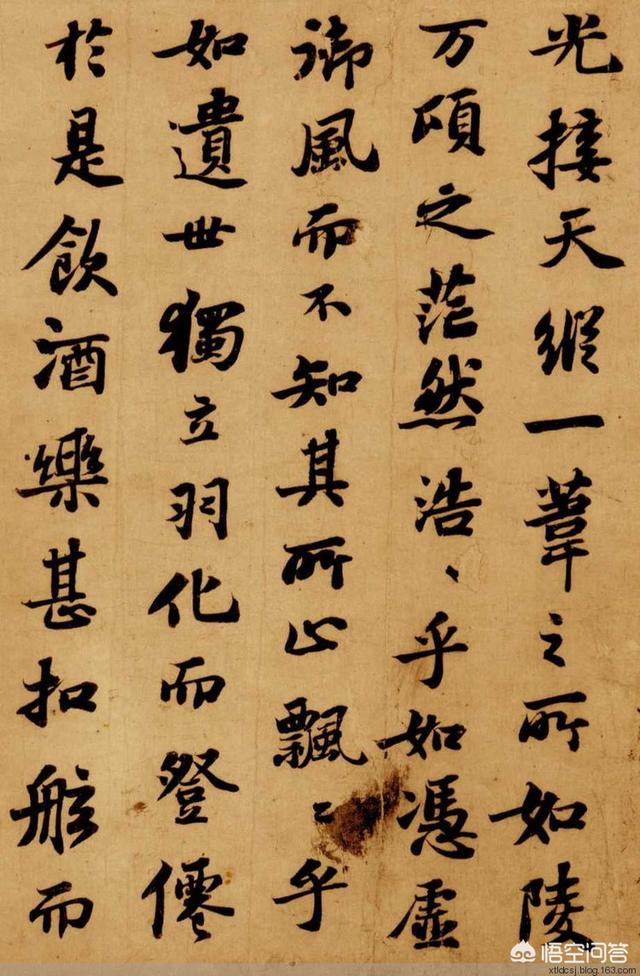 光接天縱一葦之所如陵
万頃之茫然浩〻乎如馮虛
御風而不知其所止飄〻乎
如遺世獨立羽化而登僊
於是飲酒樂甚扣舷而
悟空问答
xtldcsj.blog.163.com